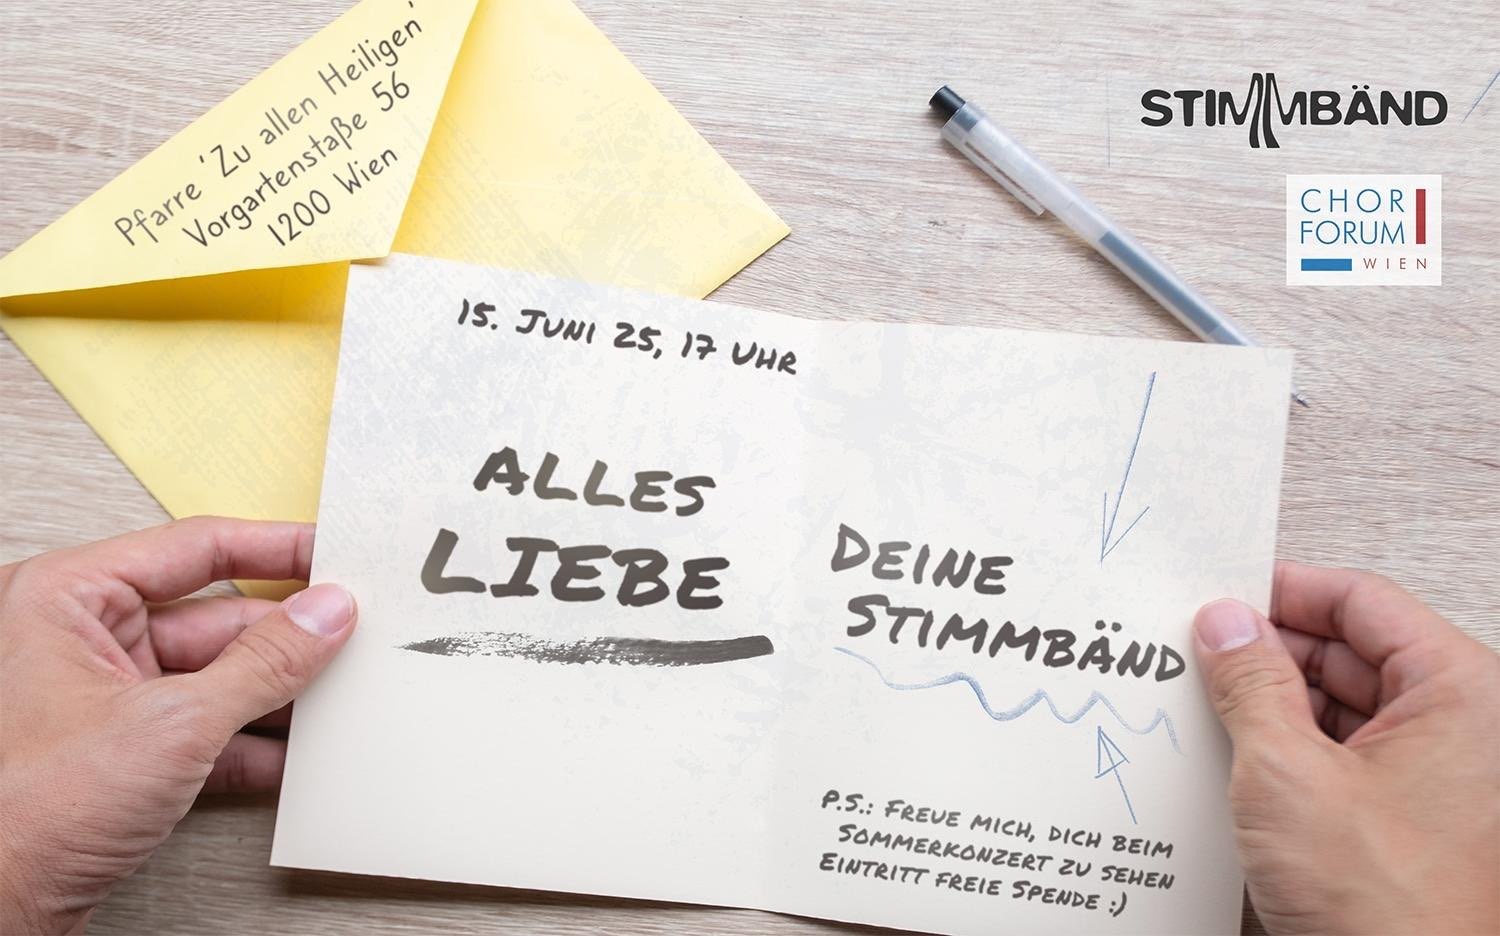 Pfarre 'Zu allen Heiligen'
Vorgartenstaße 56
1200 Wien
STIMMBÄND
CHOR
FORUM
WIEN
15. JUNI 25, 17 UHR
ALLES
LIEBE
DEINE
STIMMBÄND
P.S.: FREUE MICH, DICH BEIM
SOMMERKONZERT ZU SEHEN
EINTRITT FREIE SPENDE :)